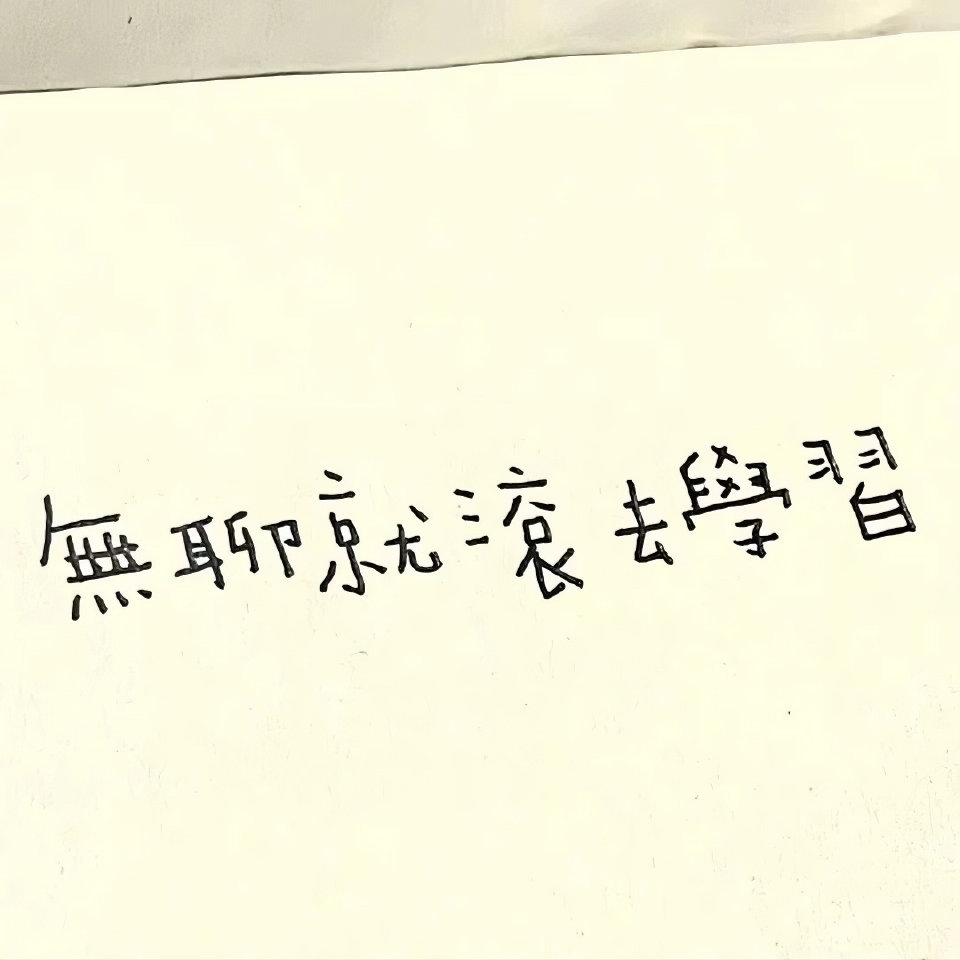 無聊就滚去學習